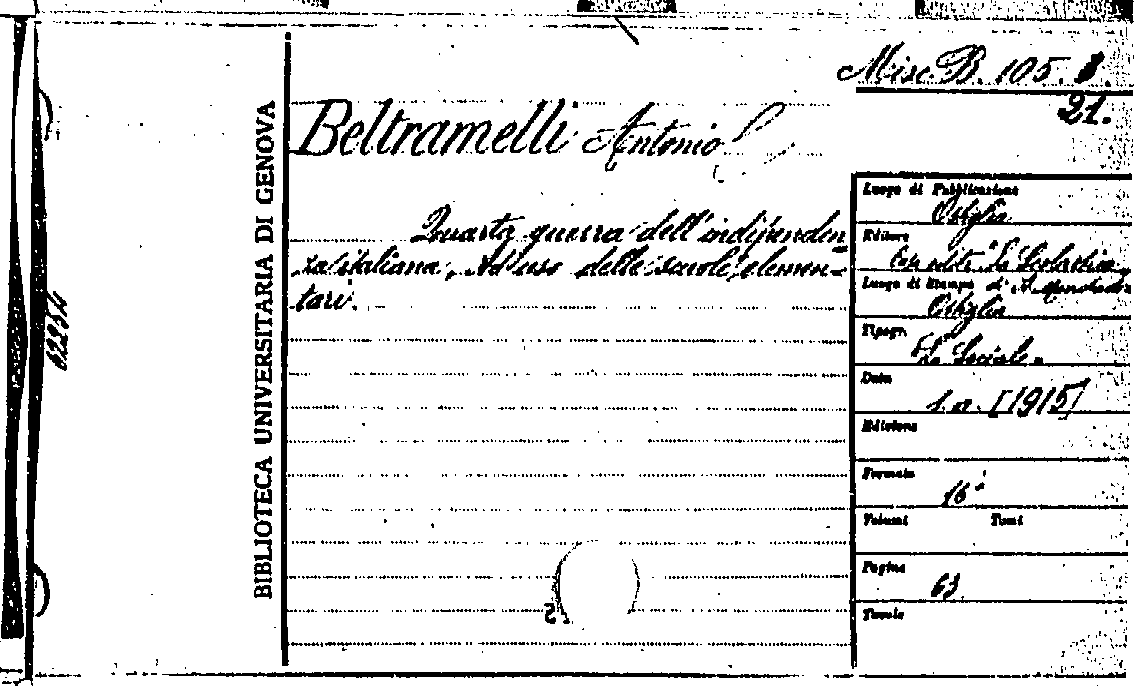 Misc. B. 105.
21.
Beltramelli Antonio
Quarta guerra dell'indipenden=
za italiana. Ad uso delle scuole elemen=
tari.
BIBLIOTECA UNIVERSITARIA DI GENOVA
62254
Luogo di Pubblicazione
Ostiglia
Editore
Casa edit. "La Scolastica"
Luogo di Stampa d'A. Mondadori
Ostiglia
Tipogr.
"La Sociale"
Data
s. a. [1915]
Edizione
Formato
16°
Volumi Tomi
Pagine
63
Tavole